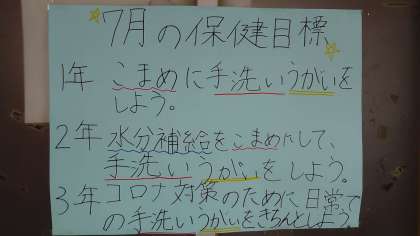 7月の保健目標
1年 こまめに手洗いうがいを
しよう。
2年 水分補給をこまめにして、
手洗いうがいをしよう。
3年 コロナ対策のために日常で
の手洗いうがいをきちんとしよう。